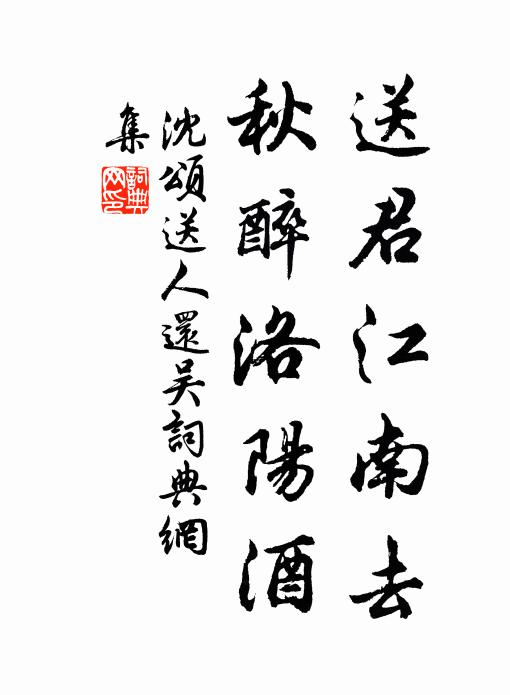 送君江南去
秋醉洛陽酒
沈頌送人還吳詞典網
集
詞典網印